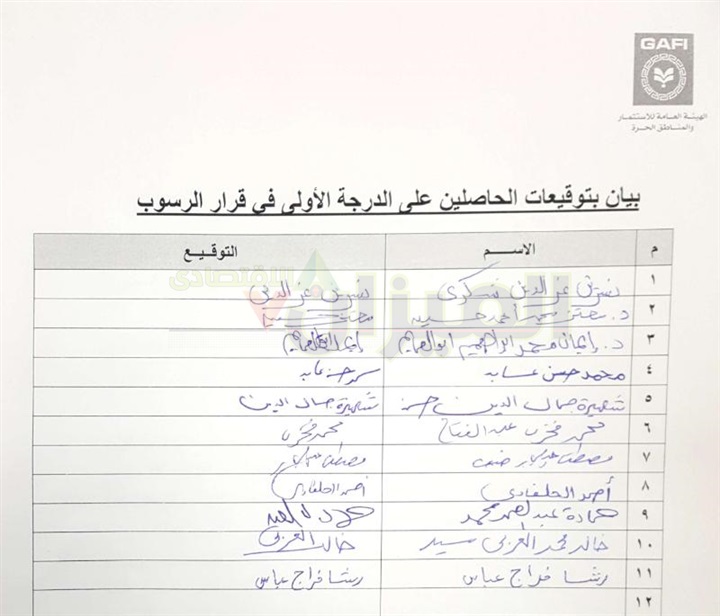 GAFI
الهيئة العامة للاستثمار
والمناطق الحرة
بيان بتوقيعات الحاصلين على الدرجة الأولى في قرار الرسوب
م الاسم التوقيع
١ نسرين عز الدين شكرى نسرين عز الدين
٢ د. معتز محمد أحمد حسين معتز
٣ د. إيمان محمد ابراهيم ابو العمايم إيمان ابو العمايم
٤ محمد حسن
٥ شهيرة جمال الدين شهيرة جمال الدين
٦ محمد فخرى عبد الفتاح محمد فخرى
٧ مصطفى مصطفى
٨ أحمد الحلفاوى أحمد الحلفاوى
٩ حمادة عبد الصمد محمد
١٠ خالد محمد العربى سيد خالد العربى
١١ رشا فراج عباس رشا فراج عباس
١٢
الميزان الاقتصادى